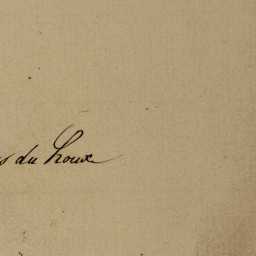 s du houx